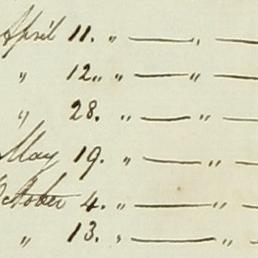 April 11. „ — „ —
„ 12„ „ — „ —
„ 28. „ — „ —
May 19. „ — „ —
October 4. „ — „ —
„ 13. „ — „ —